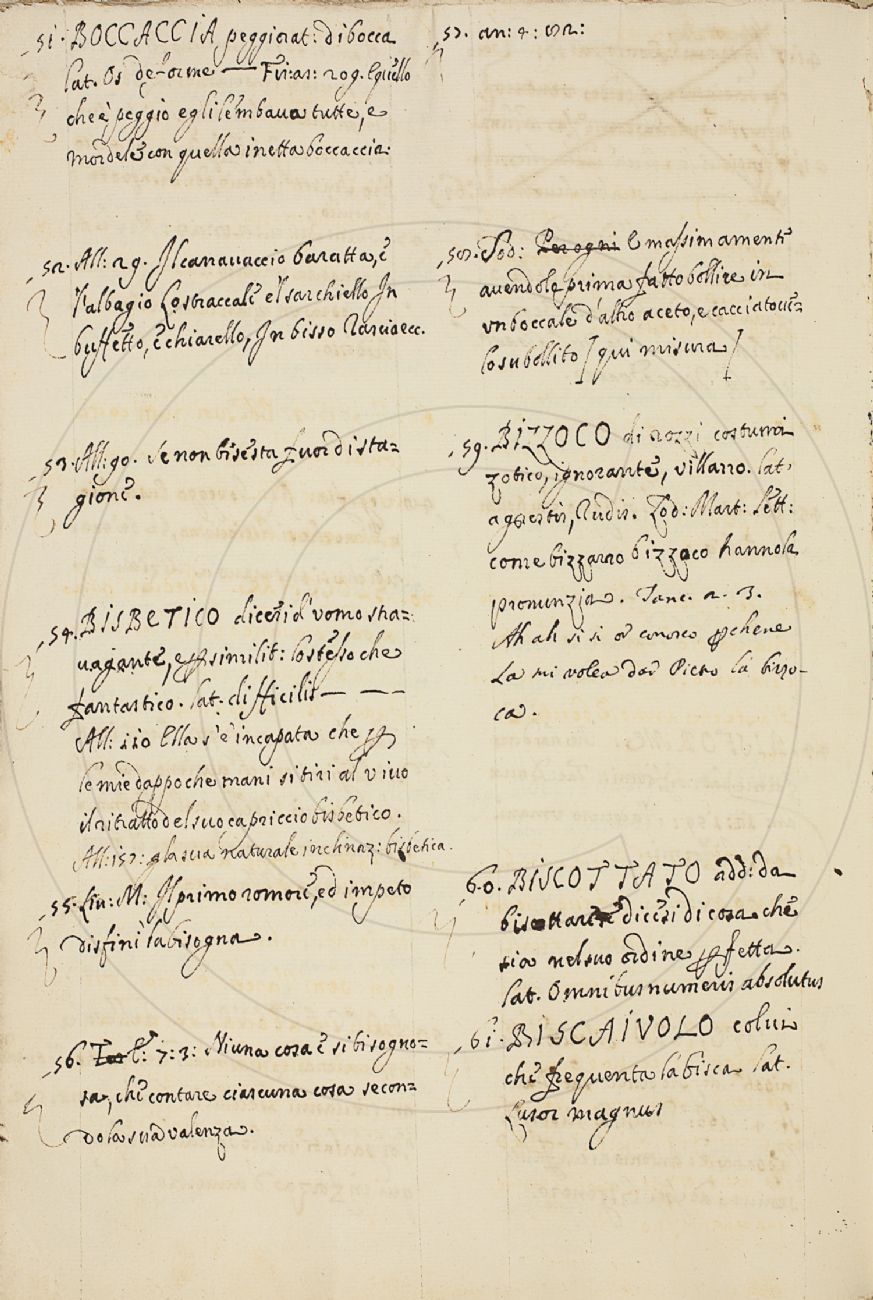 51. BOCCACCIA peggiorat: di bocca
lat. Os deforme — Fir: as: 209. E quello
che è peggio egli lembava tutte, e
mordele con quella inetta boccaccia.
52. All: 29. Il canavaccio baratta, e
l'albagio Lo straccale e'l sarchiello In
buffetto, e chiarello, In bisso
53. All: 90. Se non bisesta fuor di sta=
gione.
54. BISBETICO dicesi d'uomo stra=
vagante, e p similit: lo stesso che
fantastico. lat. difficilis — — —
All: 110 Ella s'è incapata che p
le mie dappoche mani si tiri al vivo
il ritratto del suo capriccio bisbetico.
All: 157: p la sua naturale inchinaz: bisbetica.
55. Liv: M: Il primo romore, ed impeto
disfinì la bisogna.
56. l: 7: 3: Niuna cosa è si bisogno=
sa, che contare ciascuna cosa secon=
do la sua valenza.
57. an: 4: 182:
58. Sod: Per ogni E massimamente
avendole prima fatto bollire in
un boccale d'altro aceto, e cacciatove=
lo subollito [qui misura]
59. BIZZOCO di rozzi costumi
zotico, ignorante, villano. lat.
agrestis, Rudis. Lod: Mart: Lett:
come bizzarro bizzoco hannola
pronunzia. Tanc. 2. 3.
Ah ah si si or conosco pchene
La mi volea dar Pietro la bizzo-
ca.
60. BISCOTTATO add: da
biscottare dicesi di cosa che
sia nel suo ordine pfetta.
lat. Omnibus numeris absolutus
61. BISCAIVOLO colui
che frequenta la bisca lat.
Lusor magnus